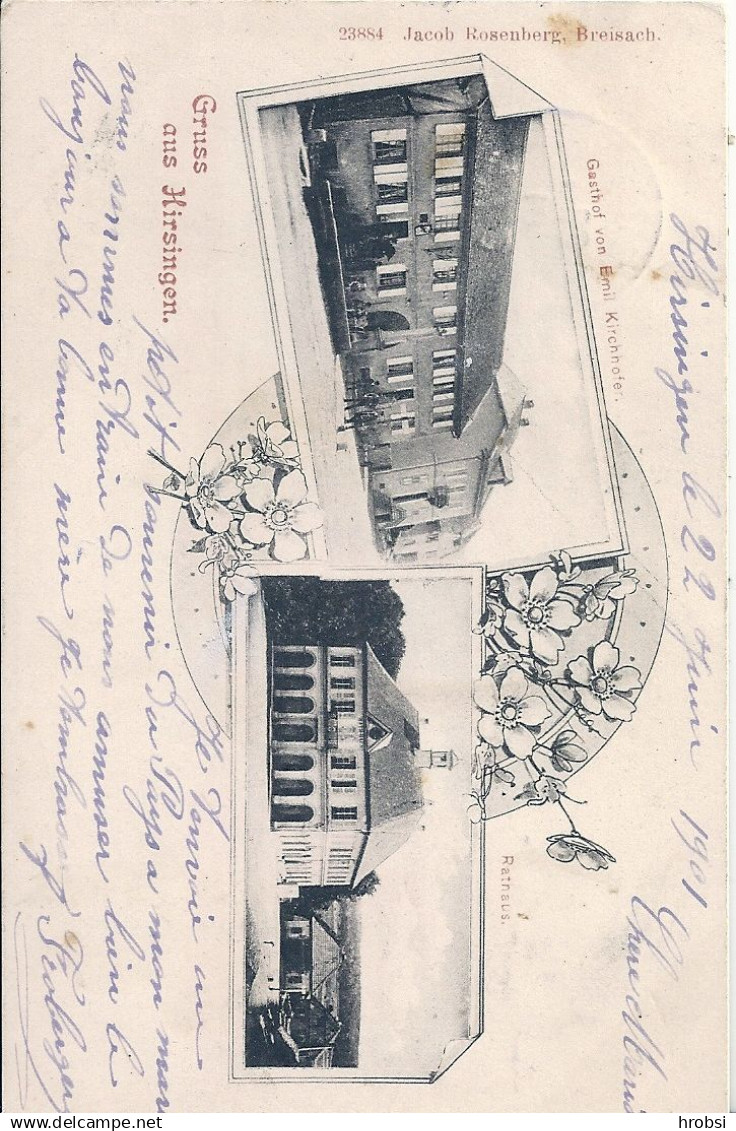 23884 Jacob Rosenberg, Breisach.
Gruss
aus Hirsingen.
Gasthof von Emil Kirchhofer.
Rathaus.
Hirsingen le 22 Juin 1901
Chere Marie
Je t'envoie un
petit souvenir du Pays a mon mari
nous sommes en train de nous amuser bien le
bonjour a ta bonne mère je t'embrasse
© hrobsi